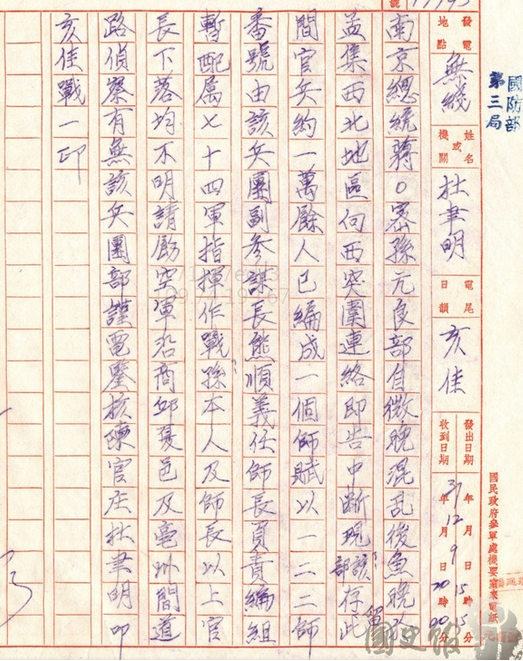 國防部
第三局
國民政府參軍處機要室來電紙
發電地點 無綫 姓名或機關 杜聿明 電尾日韻 亥佳 發出日期 37年12月9日15時15分
收到日期 年 月 日20時00分
南京總統蔣○密孫元良部自微晚混亂後魚晚
孟集西北地區向西突圍連絡即告中斷現該部存此
間官兵約一萬餘人已編成一個師賦以一二二師
番號由該兵團副參謀長熊順義任師長負責編組
暫配屬七十四軍指揮作戰孫本人及師長以上官
長下落均不明請空軍沿商邱夏邑及亳州間道
路偵察有無該兵團部謹電鑒核陳官庄杜聿明叩
亥佳戰一印